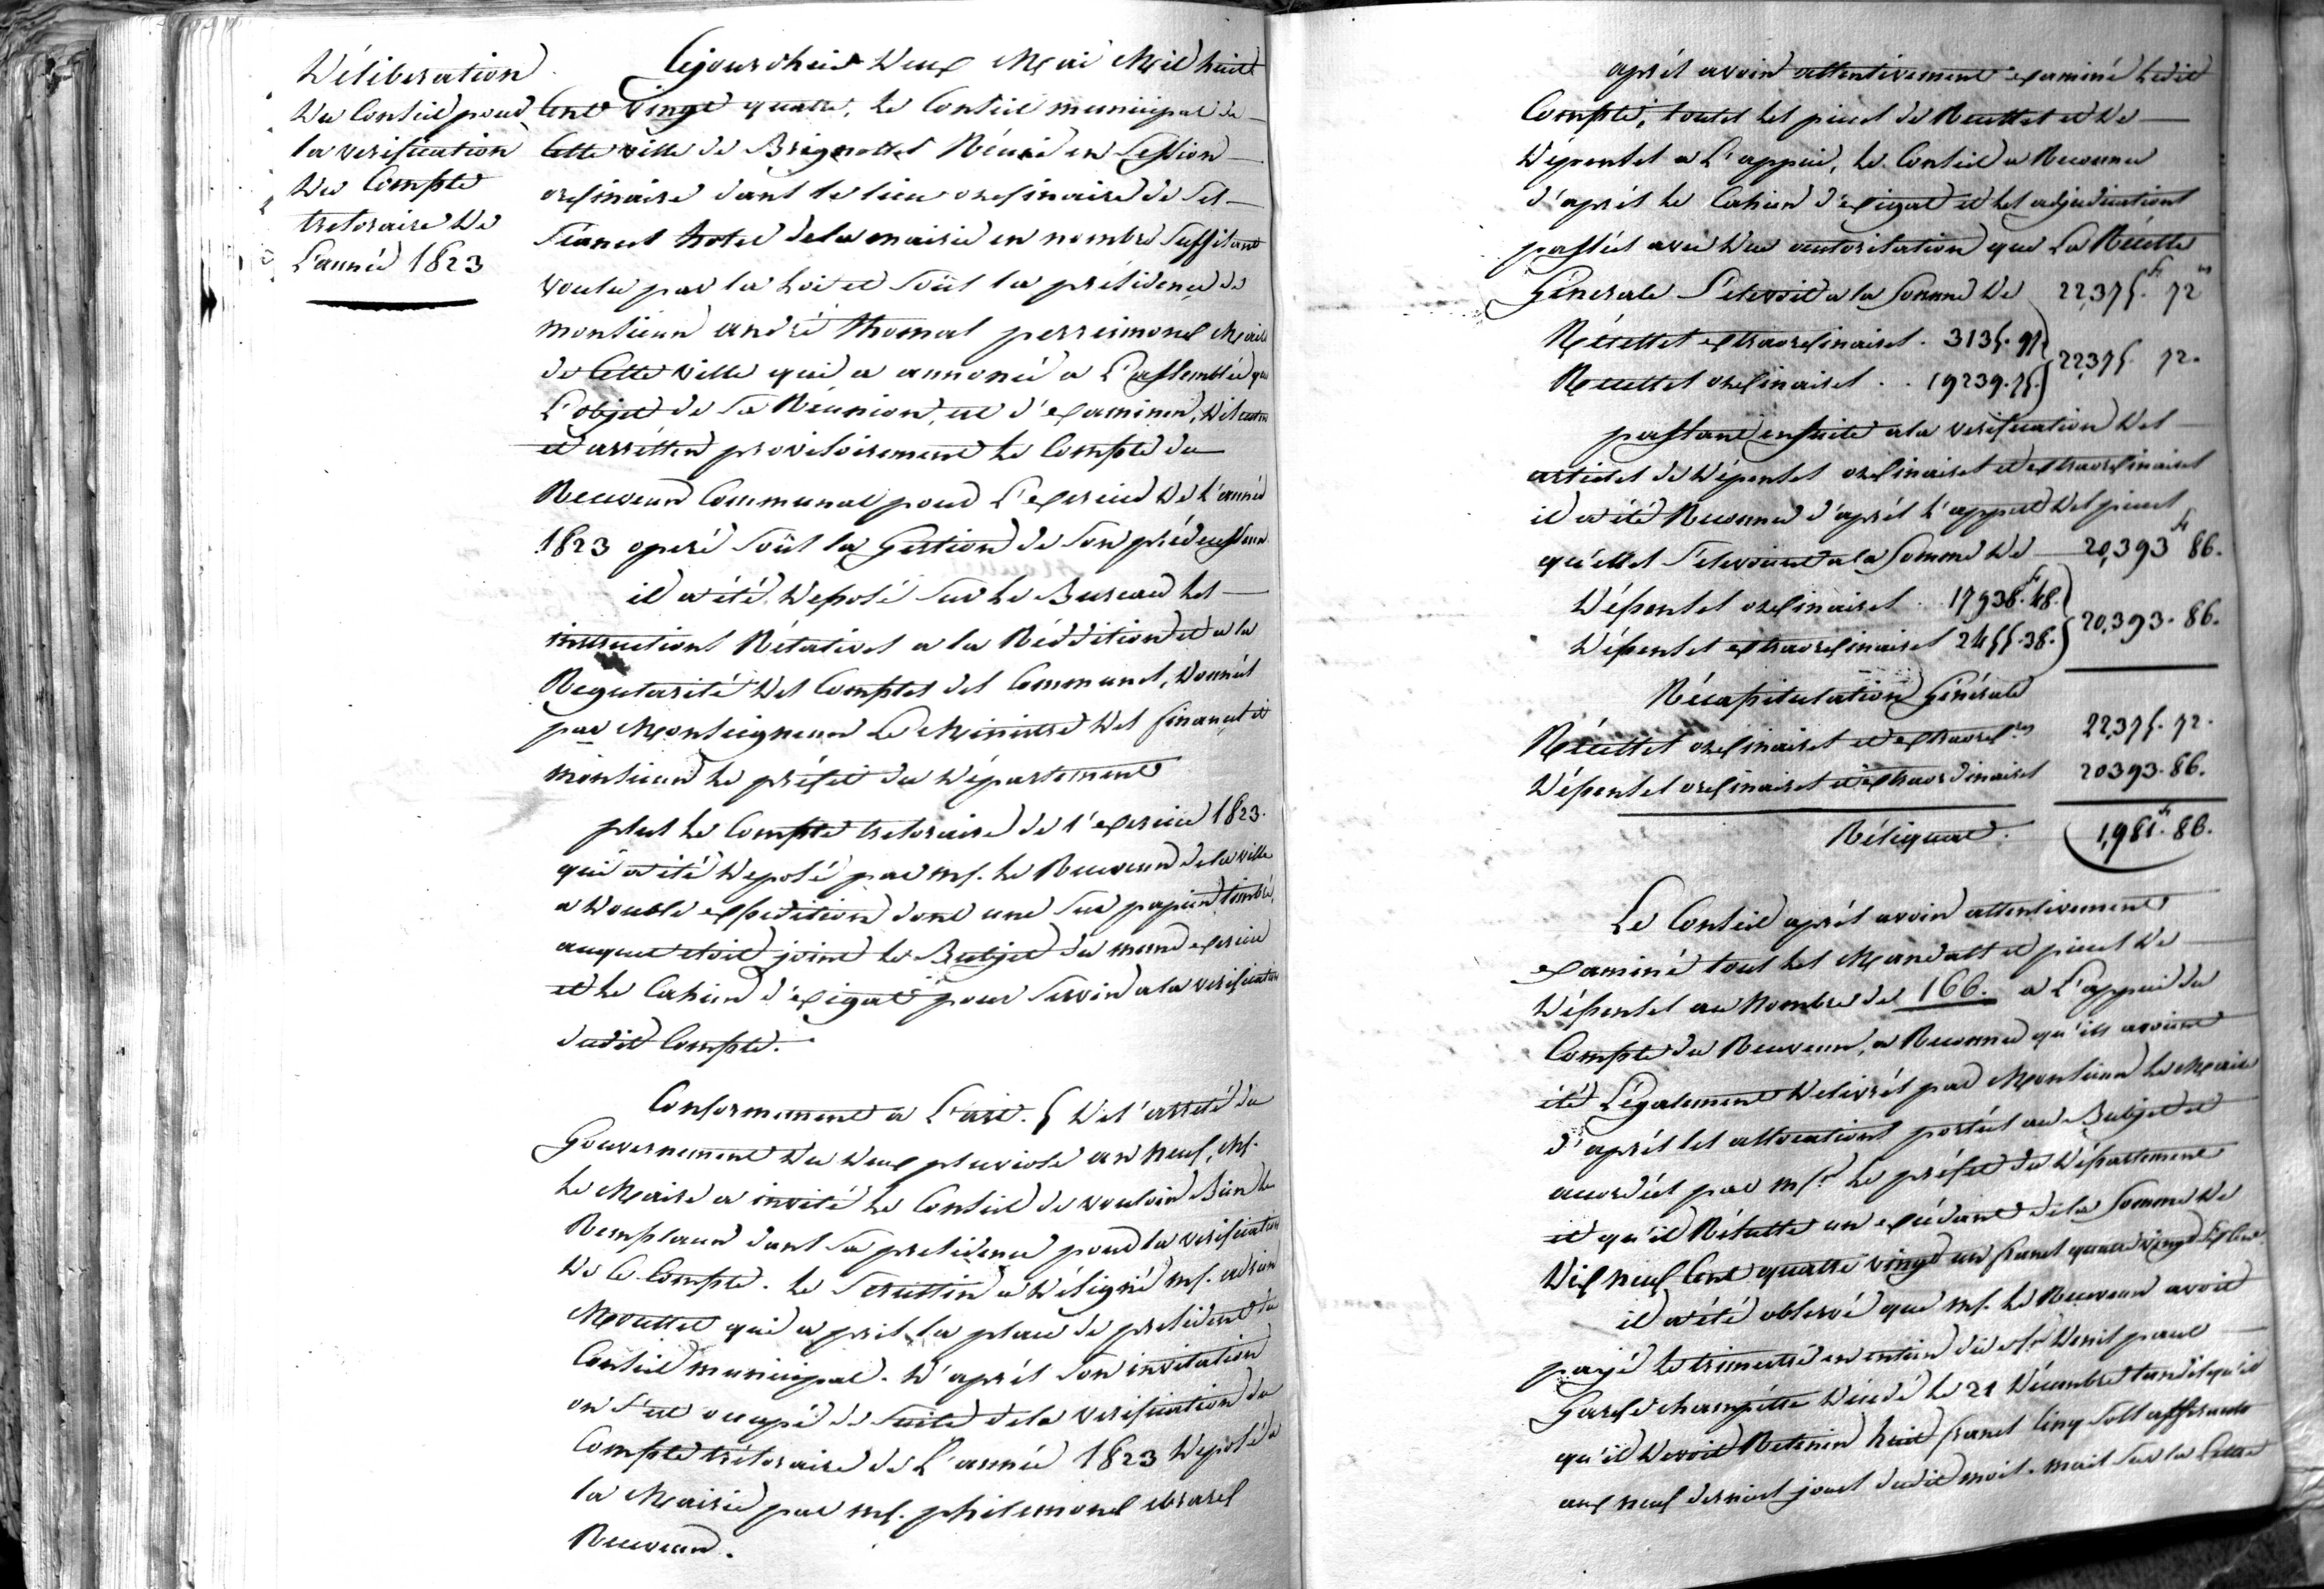 Déliberation
du Conseil pour
la verification
du Compte
tresoraire de
L'année 1823
Cejourdhui deux Mai Mil huit
Cent vingt quatre, le Conseil municipal de
Cette ville de Brignolles Réuni en Session
ordinaire dans le lieu ordinaire de ses
Séances hotel de la mairie en nombre Suffisant
voulu par la Loi et Soüs la présidence de
monsieur andré thomas perreimond Maire
de Cette ville qui a annoncé a L'assemblée que
L'objet de Sa Réunion, est d'examiner, discuter
et arrêtter provisoirement le Compte du
Receveur Communal pour L'exercice de L'année
1823 operé Soüs la Gestion de Son prédecesseur
il a été déposé sur le Bureau les
instructions Rélatives a la Réddition et a la
Regularité des Comptes des Communes, donnés
par Monseigneur Le Ministre des finances et
monsieur le préfet du département
plus le Compte tresoraire de l'exercice 1823.
qui a été deposé par mr. le Receveur de la ville
a double expedition dont une Sur papier timbré,
auquel etoit joint le Budjet du meme exercice
et le Cahier d'exigat pour Servir a la verification
dudit Compte.
Conformement a L'art. 5 de l'arreté du
Gouvernement du deux pluviose an neuf, Mr.
le Maire a invité le Conseil de vouloir Bien le
Remplacer dans Sa presidence pour la verification
de Ce Compte. le Scruttin a désigné mr. adrien
Mouttet qui a pris la place de president du
Conseil municipal. d'aprés Son invitation
on S'est occupé de Suite de la verification du
Compte trésoraire de L'année 1823 deposé a
la Mairie par mr. philemond ebrard
Receveur.
aprés avoir attentivement examiné Ledit
Compte, toutes les pieces de Recettes et de
dépenses a L'appui, le Conseil a Reconnu
d'aprés le Cahier d'exigat et les adjudications
passées avec due autorisation que La Récette
Génerale S'elevoit a la Somme de 22,375.fr 72cs
Récettes extraordinaires. 3135.97.
Recettes ordinaires.. 19239.75. 22,375 72.
passant ensuite a la verification des
articles de dépenses ordinaires et extraordinaires
il a été Reconnu d'aprés L'appel des pieces
qu'elles S'elevoient a la Somme de 20,393fr 86.
dépenses ordinaires. 17938.fr 48.
dépenses extraordinaires 2455.38. 20,393.86.
Récapitulation Générale
Récettes ordinaires et extraord.res 22,375.72.
dépenses ordinaires et extraordinaires 20393.86.
Réliquat. 1,981.fr 86.
Le Conseil aprés avoir attentivement
examiné tous les Mandats et pieces de
dépenses au Nombre de 166. a L'appui du
Compte du Receveur, a Reconnu qu'ils avoient
été Légalement delivrés par Monsieur le Maire
d'aprés les allocations portées au Budjet et
accordées par mr. le préfet du département
et qu'il Résulte un excédant de la Somme de
dix neuf Cent quatre vingt un francs quatre vingt Six Cent.
il a été observé que mr. le Receveur avoit
payé le trimestre en entier du sr. denis paul
Garde champêtre décédé le 21 décembre tandis qu'il
qu'il devoit Retenir huit francs Cinq Sols afferants
aux neuf derniers jours dudit mois. mais Sur la Lettre